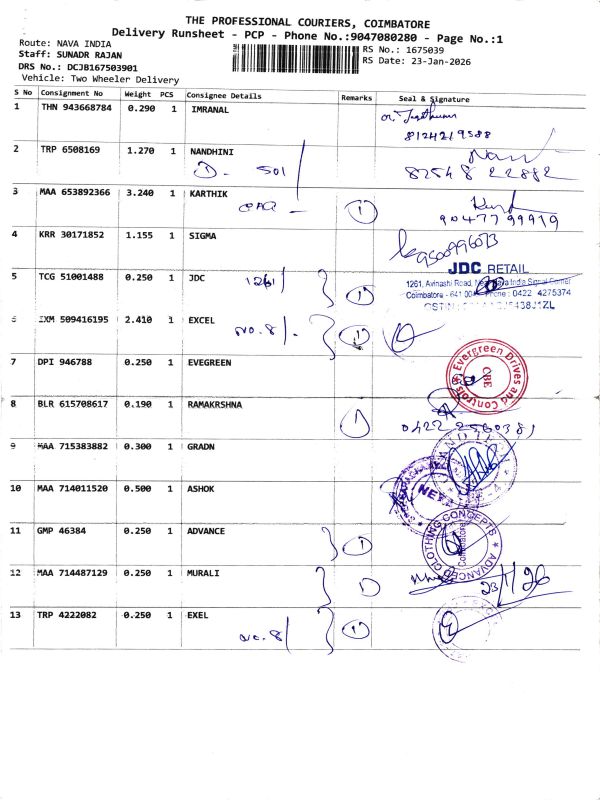 THE PROFESSIONAL COURIERS, COIMBATORE
Delivery Runsheet - PCP - Phone No.:9047080280 - Page No.:1
Route: NAVA INDIA
Staff: SUNADR RAJAN
DRS No.: DCJB167503901
Vehicle: Two Wheeler Delivery
RS No.: 1675039
RS Date: 23-Jan-2026
S No Consignment No Weight PCS Consignee Details Remarks Seal & Signature
1 THN 943668784 0.290 1 IMRANAL
8124219588
2 TRP 6508169 1.270 1 NANDHINI
1. 501
82548 22882
3 MAA 653892366 3.240 1 KARTHIK
1
90477 99919
4 KRR 30171852 1.155 1 SIGMA
9500996073
5 TCG 51001488 0.250 1 JDC 1261 1
JDC RETAIL
1261, Avinashi Road, Near Nava India Signal Corner
Coimbatore - 641 004 Phone : 0422 4275374
6 IXM 509416195 2.410 1 EXCEL
No. 8/. 1
7 DPI 946788 0.250 1 EVEGREEN
Evergreen Drives and Controls
CBE
8 BLR 615708617 0.190 1 RAMAKRSHNA
1
0422 2560381
9 MAA 715383882 0.300 1 GRADN
10 MAA 714011520 0.500 1 ASHOK
11 GMP 46384 0.250 1 ADVANCE 1
ADVANCED CLOTHING CONCEPTS
Coimbatore
12 MAA 714487129 0.250 1 MURALI 1
23/1/26
13 TRP 4222082 0.250 1 EXEL
No. 8/ 1